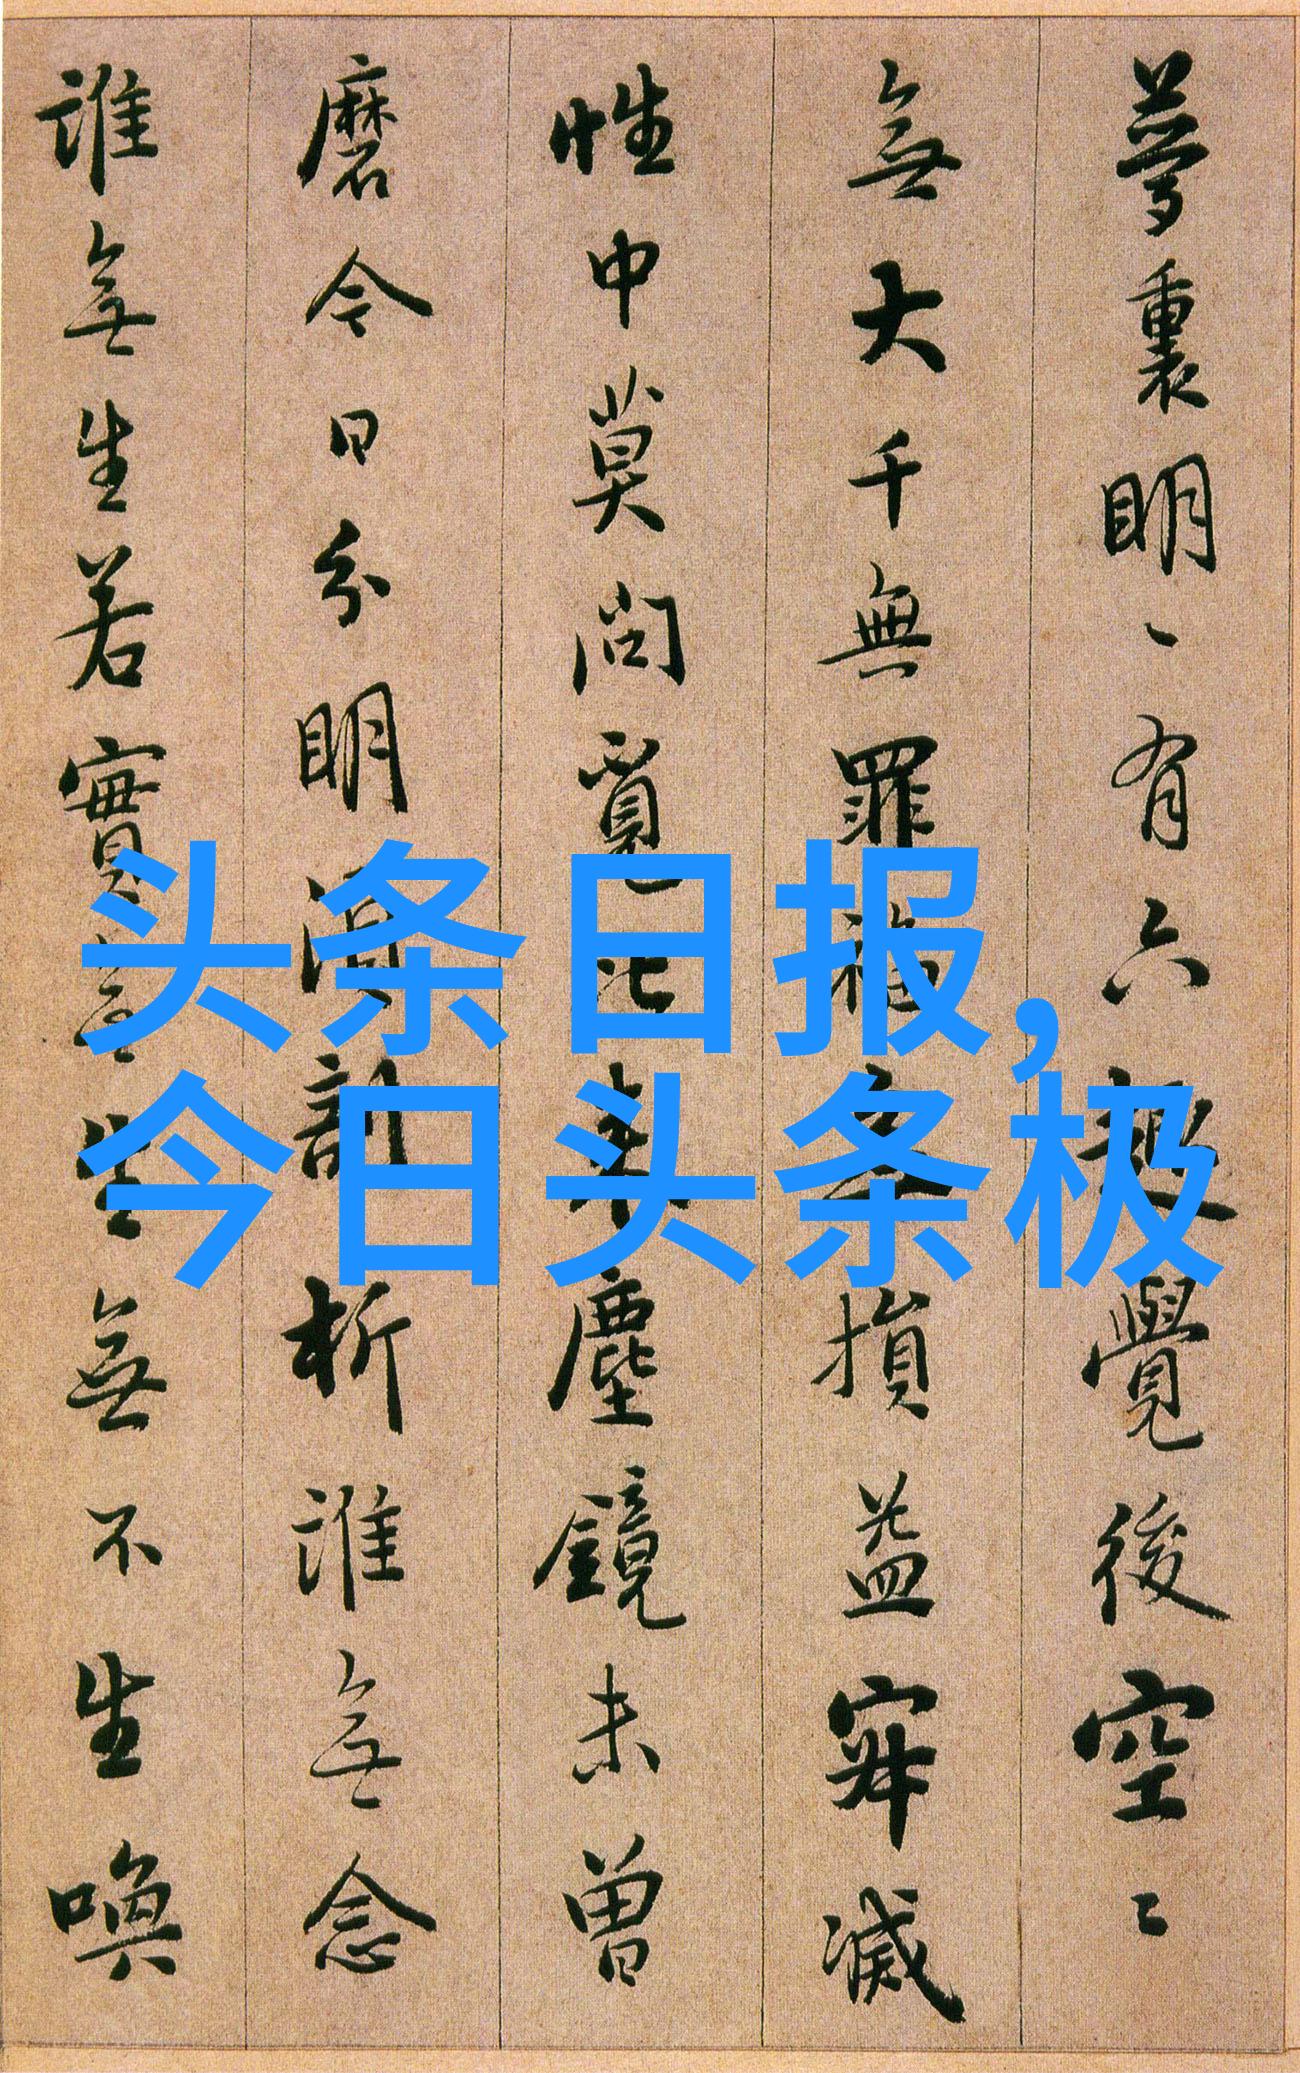 夢裏明〻有六趣覺後空〻
無大千無罪福無損益寂滅
性中莫問覓比來塵鏡未曾
磨今日分明須剖析誰無念
誰無生若實無生無不生喚
头条日报,
今日头条极